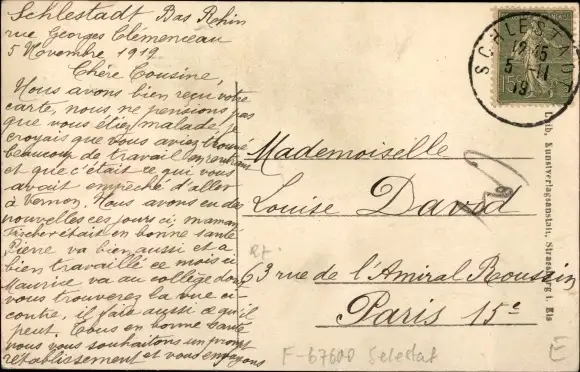 Schlestadt Bas Rehin
rue Georges Clémenceau
5 Novembre 1919
Chère Cousine,
Nous avons bien reçu votre
carte, nous ne pensions pas
que vous étiez malade, je
croyais que vous aviez trouvé
beaucoup de travail en rentrant
et que c'était ce qui vous
avait empêché d'aller
à Vernon. Nous avons eu des
nouvelles ces jours ci, maman
Fischer était en bonne santé
Pierre va bien aussi et a
bien travaillé ce mois ci
Maurice va au collège dont
vous trouverez la vue ci-
contre, il fait aussi ce qu'il
peut. Tous en bonne santé
nous vous souhaitons un prompt
rétablissement et vous envoyons
SCHLESTADT
12 15
5 - 11
19
Mademoiselle
Louise David
63 rue de l'Amiral Roussin
Paris 15e
Lith. Kunstverlagsanstalt, Strassburg i. Els
F-67600 Selestat
E